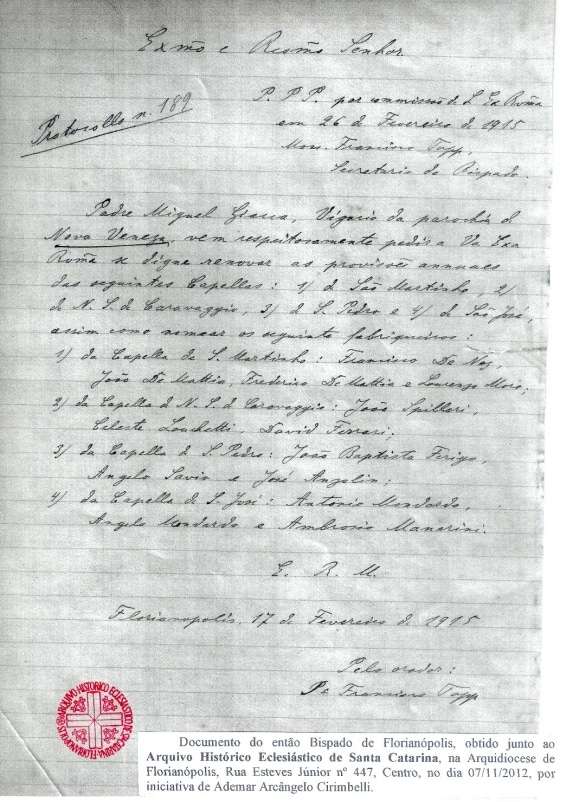 Exmo e Revmo Senhor.
Protocollo n. 189
P. P. P. por commissão de S. Ex Revma
em 26 de Fevereiro de 1915
Mons. Francisco Topp,
Secretario do Bispado.
Padre Miguel Giacca, Vigario da parochia de
Nova Veneza, vem respeitosamente pedir a Va Exa
Revma se digne renovar as provisões annuaes
das seguintes Capellas: 1) de São Martinho, 2)
de N. S. de Caravaggio, 3) de S. Pedro e 4) de São José,
assim como nomear os seguinte fabriqueiros:
1) da Capella de S. Martinho: Francisco De Noz,
João De Mattia, Frederico De Mattia e Lourenço Moro;
2) da Capella de N. S. de Caravaggio: João Spilleri,
Celeste Lonchetti, David Ferrari;
3) da Capella de S. Pedro: João Baptista Frigo,
Angelo Savio e José Angelin;
4) da Capella de S. José: Antonio Mondardo,
Angelo Mondardo e Ambrosio Manarini.
E. R. M.
Florianopolis, 17 de Fevereiro de 1915
Pelo orador:
Pe Francisco Topp
ARQUIVO HISTÓRICO ECLESIÁSTICO DE S. CATARINA - FLORIANÓPOLIS
Documento do então Bispado de Florianópolis, obtido junto ao
Arquivo Histórico Eclesiástico de Santa Catarina, na Arquidiocese de
Florianópolis, Rua Esteves Júnior nº 447, Centro, no dia 07/11/2012, por
iniciativa de Ademar Arcângelo Cirimbelli.